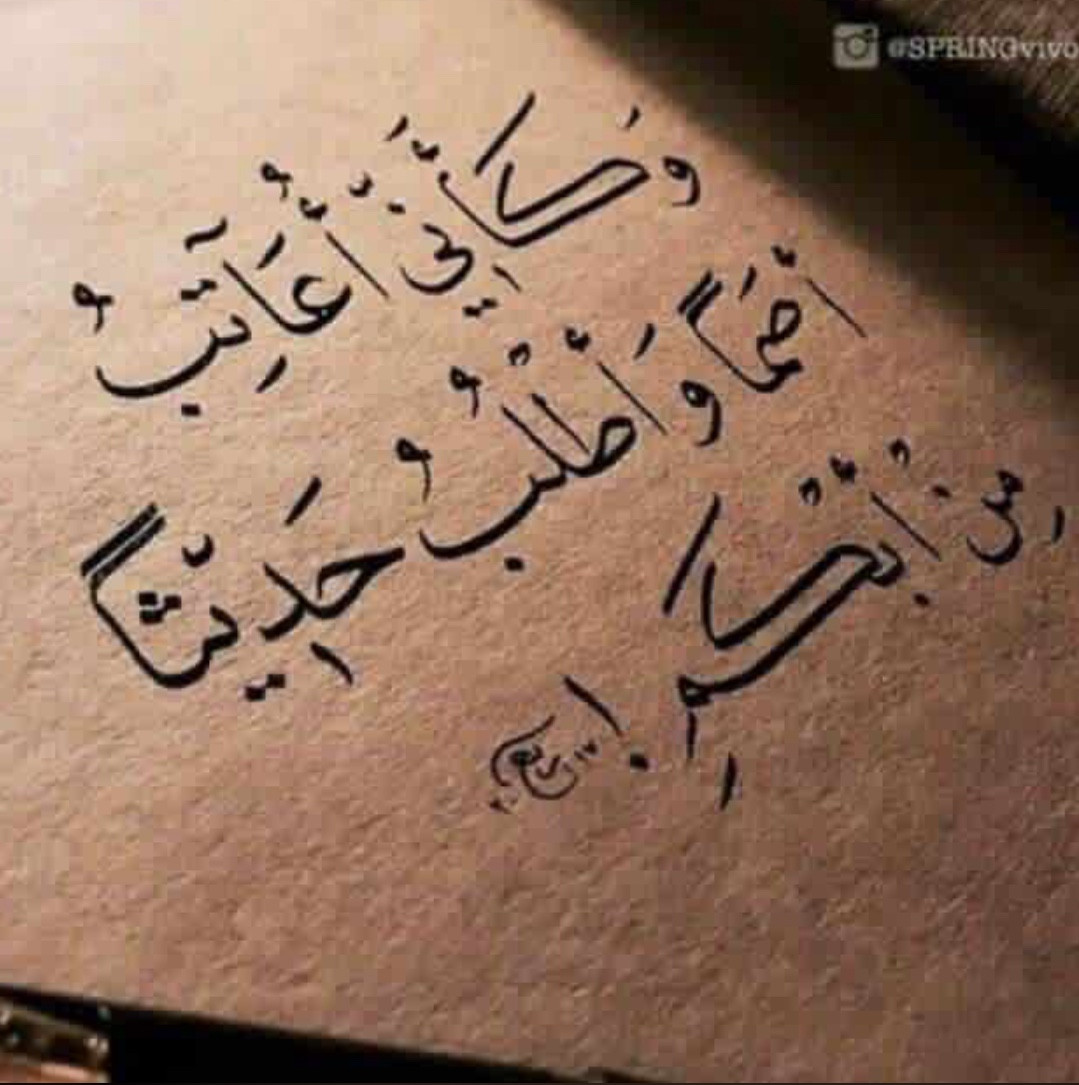 @SPRINGvivo
وَكَأَنِّي أُعَاتِبُ
أَصَمًّا وَأَطْلُبُ حَدِيثًا
مِنْ أَبْكَمٍ !